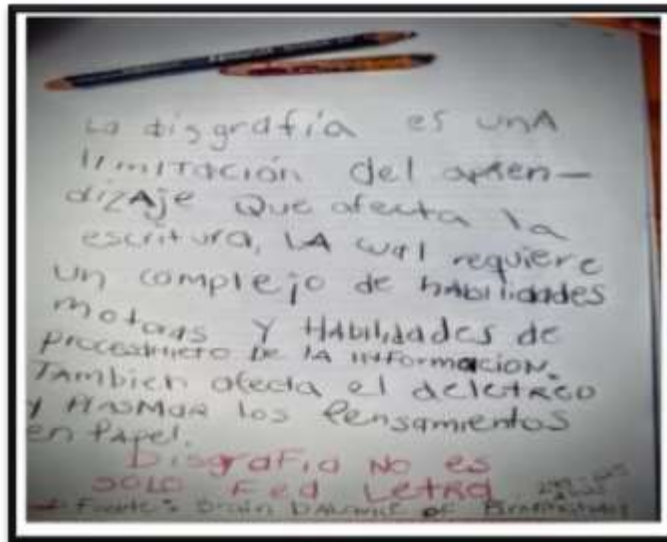 La disgrafía es unA
limitación del apren-
dizAje Que afecta la
escritura, LA cual requiere
un complejo de hAbilidades
motoras Y HAbilidades de
DE lA INFormacION.
TAmbien afecta el deletREO
y PlASMAR los Pensamientos
en PApel.
DisgraFia NO es
SOLO FEa LetRa
Fuente: Brain BALANCE OF